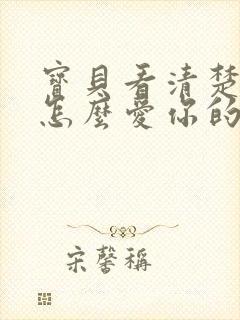 寶貝看清楚
怎麼愛你的
宋馨稱